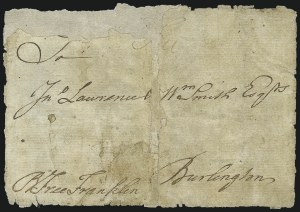 To
Jno Lawrence & Wm Smith Esqrs
B Free Franklin Burlington